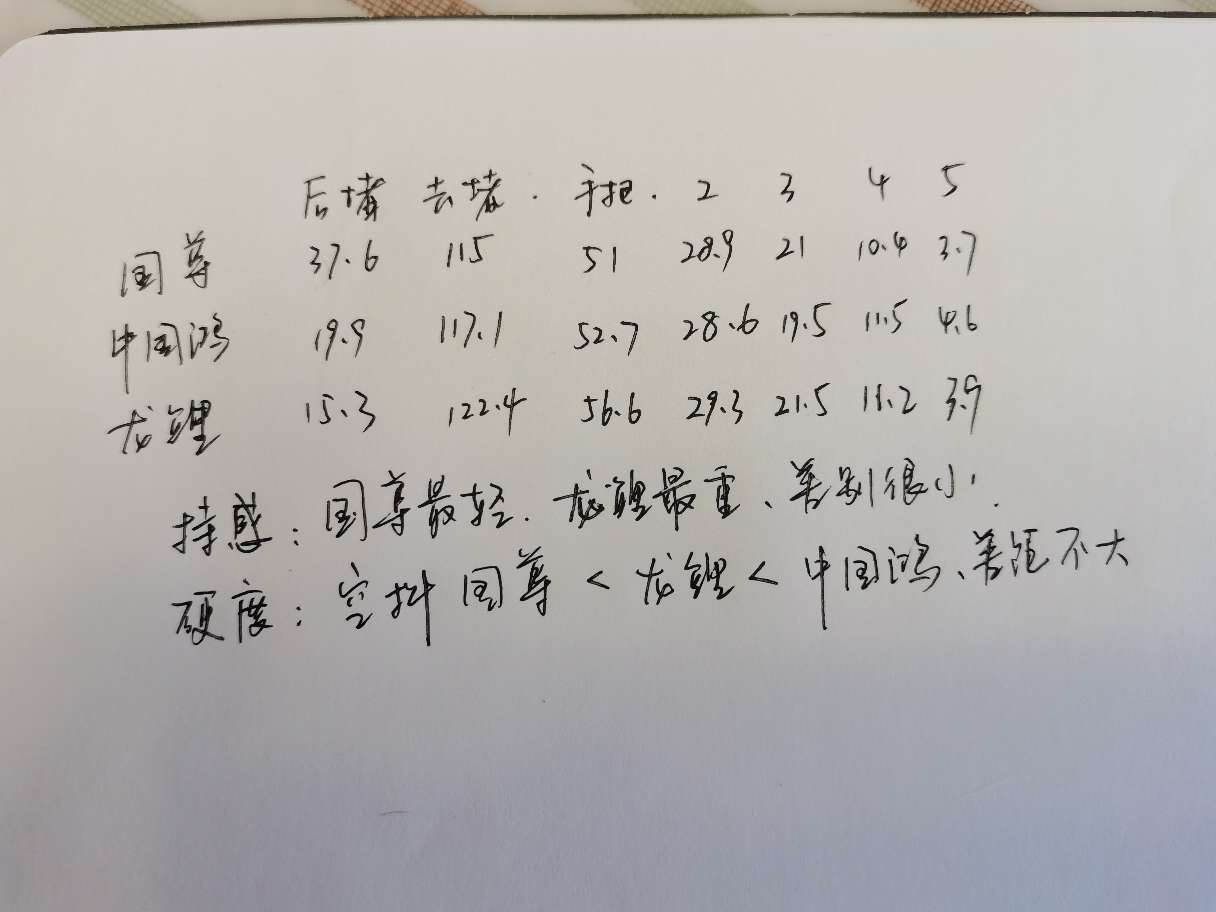 后堵 去堵. 手把. 2 3 4 5
国尊 37.6 115 51 28.9 21 10.4 3.7
中国鸿 19.9 117.1 52.7 28.6 19.5 11.5 4.6
龙鲤 15.3 122.4 56.6 29.3 21.5 11.2 3.9
持感:国尊最轻.龙鲤最重、差别很小.
硬度:空抖 国尊<龙鲤<中国鸿、差距不大